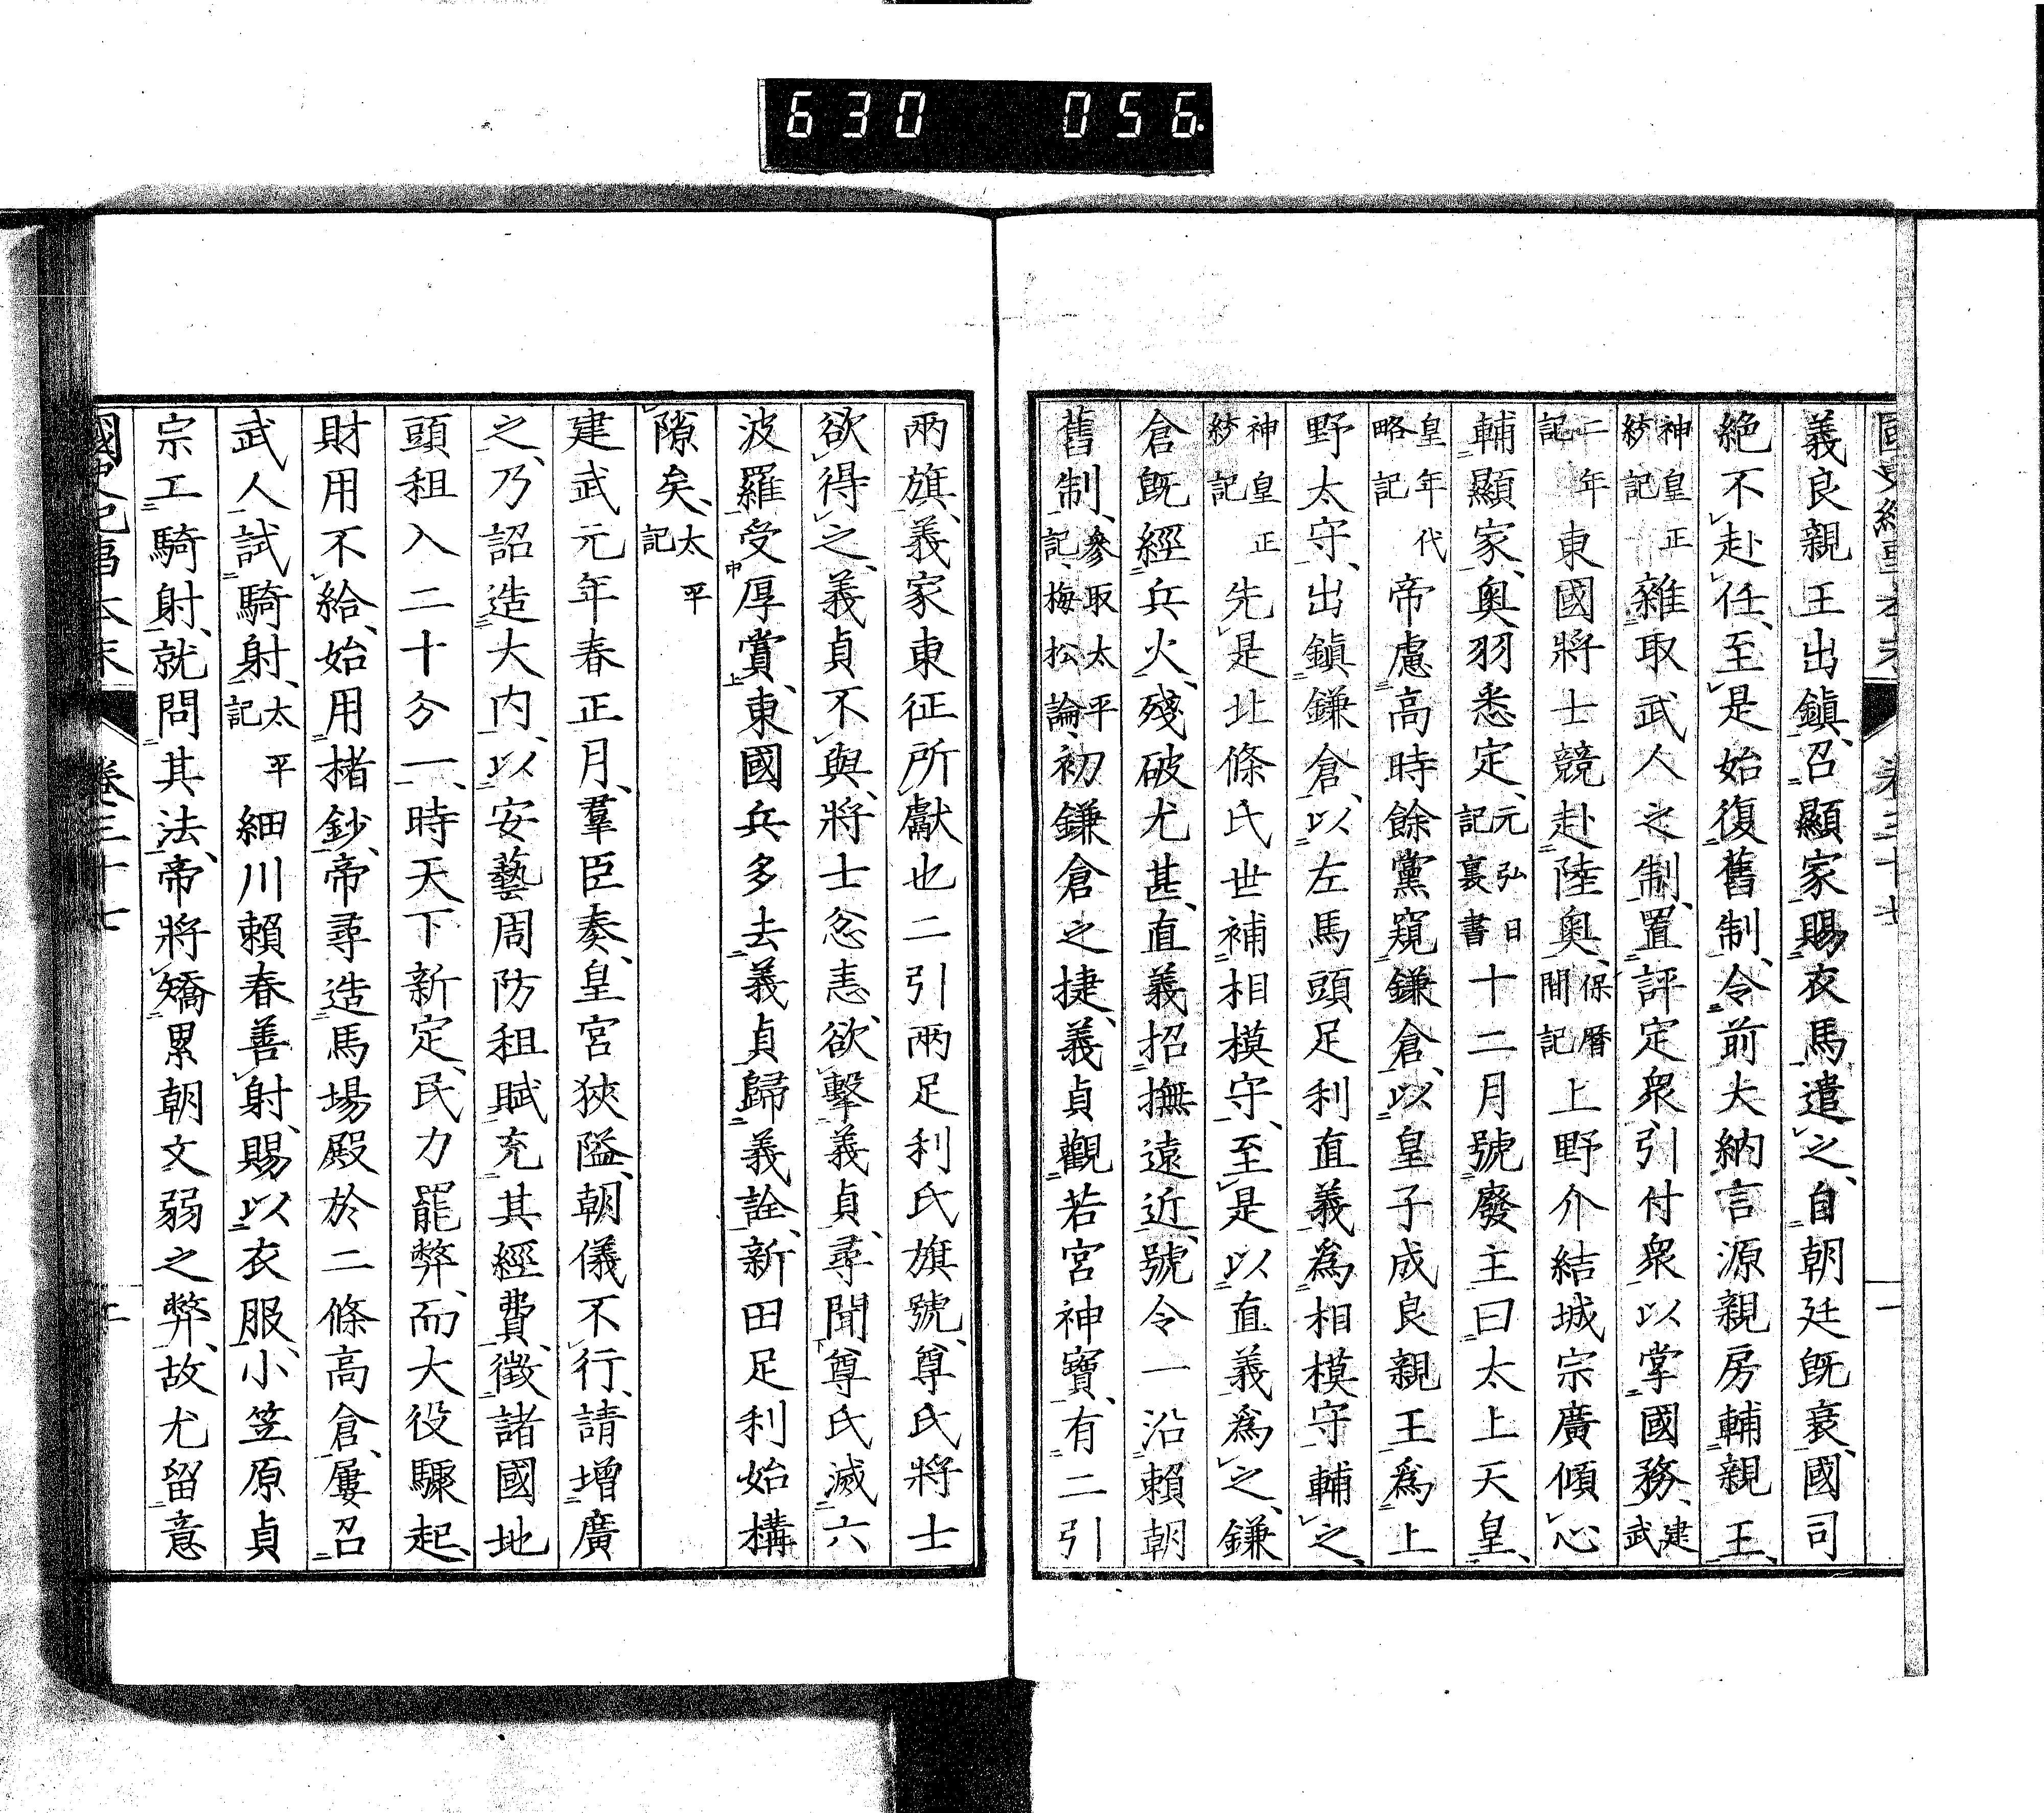 630 056
義良親王出鎭、召顯家賜衣馬遣之、自朝廷旣衰、國司
絶不赴任、至是始復舊制、令前大納言源親房輔親王、
神皇正統記雜取武人之制、置評定衆、引付衆以掌國務、建武
二年記東國將士競赴陸奥、保曆間記上野介結城宗廣傾心
輔顯家、奥羽悉定、元弘日記裏書十二月號廢主曰太上天皇、
皇年代略記帝慮高時餘黨窺鎌倉、以皇子成良親王爲上
野太守、出鎭鎌倉、以左馬頭足利直義爲相模守輔之、
神皇正統記先是北條氏世補相模守、至是以直義爲之、鎌
倉旣經兵火、殘破尤甚、直義招撫遠近、號令一沿賴朝
舊制、參取太平記、梅松論、初鎌倉之捷、義貞觀若宮神寶、有二引
兩旗、義家東征所獻也二引兩足利氏旗號、尊氏將士
欲得之、義貞不與、將士忿恚、欲擊義貞、尋聞尊氏滅六
波羅受厚賞、東國兵多去義貞歸義詮、新田足利始構
隙矣、太平記
建武元年春正月、羣臣奏、皇宮狹隘、朝儀不行、請增廣
之、乃詔造大内、以安藝周防租賦充其經費、徵諸國地
頭租入二十分一、時天下新定、民力罷弊、而大役驟起、
財用不給、始用楮鈔、帝尋造馬場殿於二條高倉、屢召
武人試騎射、太平記細川賴春善射、賜以衣服、小笠原貞
宗工騎射、就問其法、帝將矯累朝文弱之弊、故尤留意
國史紀事本末 卷三十七 二